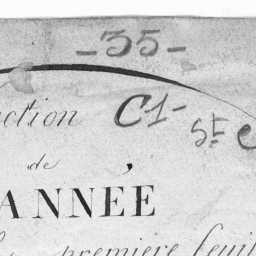 -35-
ction C1-
St
de
ANNÉE
première feuil